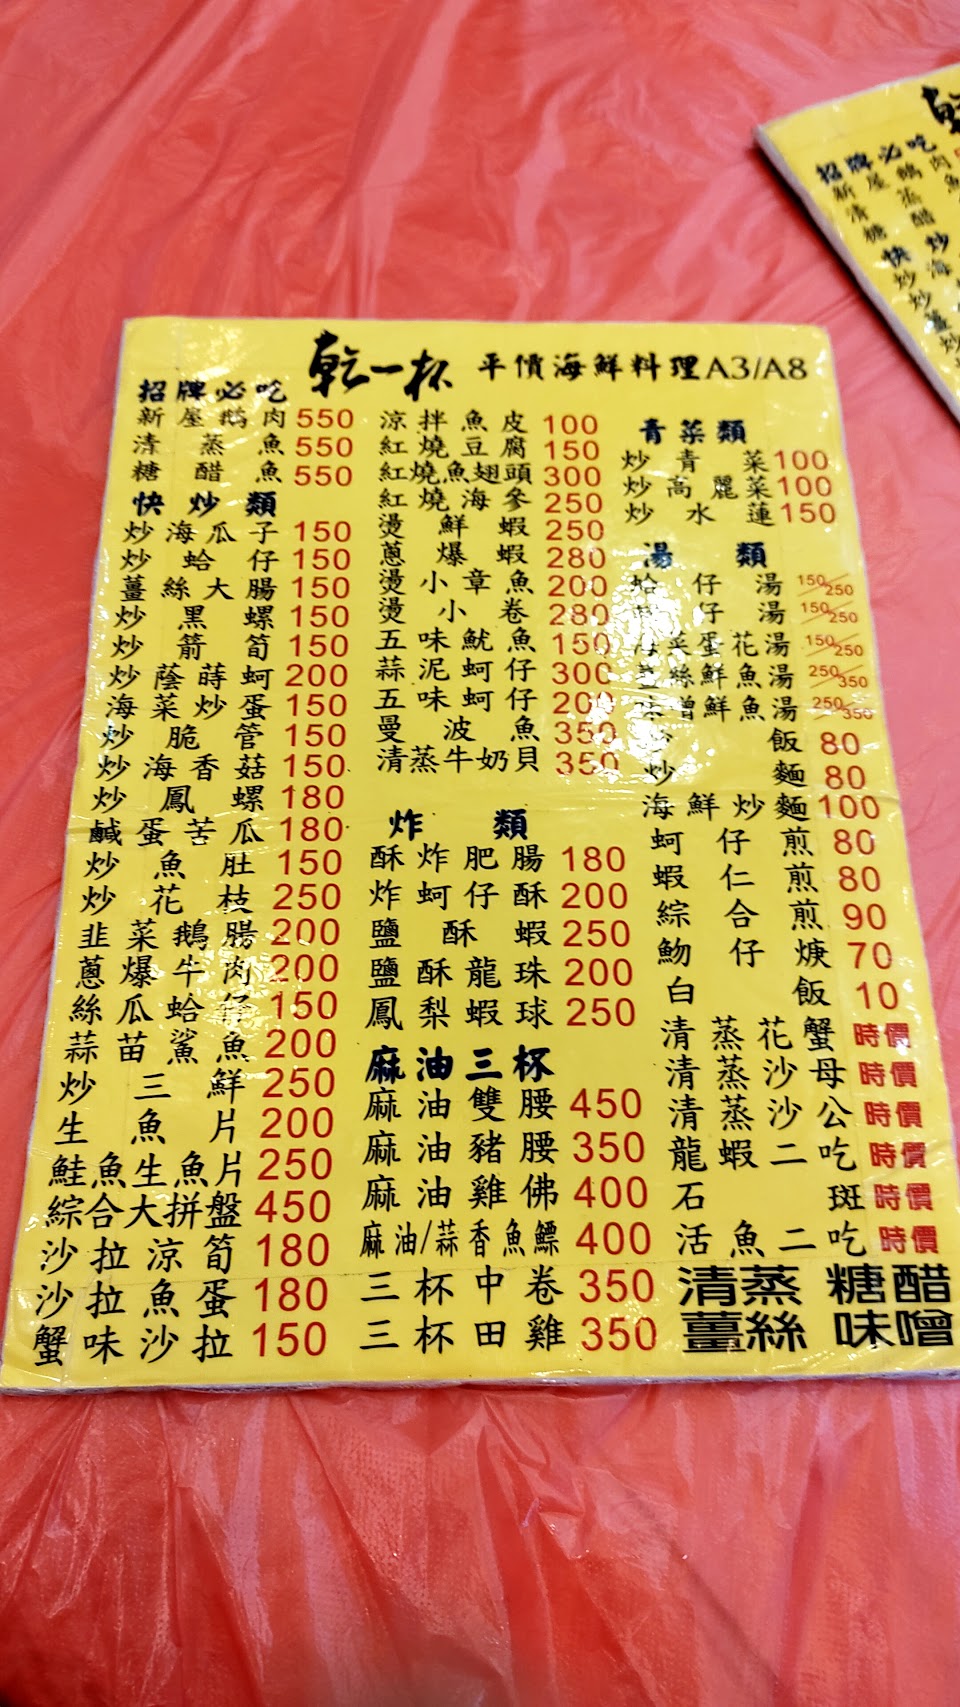 乾一杯 平價海鮮料理A3/A8
招牌必吃
新屋鵝肉550
清蒸魚550
糖醋魚550
快炒類
炒海瓜子150
炒蛤仔150
薑絲大腸150
炒黑螺150
炒箭筍150
炒蔭蒔蚵200
海菜炒蛋150
炒脆管150
炒海香菇150
炒鳳螺180
鹹蛋苦瓜180
炒魚肚150
炒花枝250
韭菜鵝腸200
蔥爆牛肉200
絲瓜蛤仔150
蒜苗鯊魚200
炒三鮮250
生魚片200
鮭魚生魚片250
綜合大拼盤450
沙拉涼筍180
沙拉魚蛋180
蟹味沙拉150
涼拌魚皮100
紅燒豆腐150
紅燒魚翅頭300
紅燒海參250
燙鮮蝦250
蔥爆蝦280
燙小章魚200
燙小卷280
五味魷魚150
蒜泥蚵仔300
五味蚵仔200
曼波魚350
清蒸牛奶貝350
炸類
酥炸肥腸180
炸蚵仔酥200
鹽酥蝦250
鹽酥龍珠200
鳳梨蝦球250
麻油三杯
麻油雙腰450
麻油豬腰350
麻油雞佛400
麻油/蒜香魚鰾400
三杯中卷350
三杯田雞350
青菜類
炒青菜100
炒高麗菜100
炒水蓮150
湯類
蛤仔湯150/250
仔湯150/250
海菜蛋花湯150/250
薑絲鮮魚湯250/350
味噌鮮魚湯250/350
炒飯80
炒麵80
海鮮炒麵100
蚵仔煎80
蝦仁煎80
綜合煎90
魩仔焿70
白飯10
清蒸花蟹時價
清蒸沙母時價
清蒸沙公時價
龍蝦二吃時價
石斑時價
活魚二吃時價
清蒸 糖醋
薑絲 味噌
招牌必吃
新屋鵝肉
清蒸魚
糖醋
快炒
炒海
炒
薑
炒